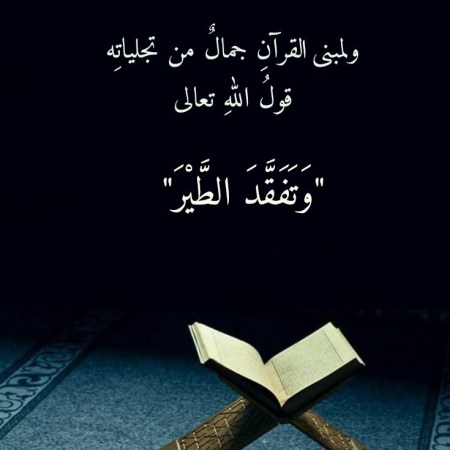 ولمبنى القرآنِ جمالٌ من تجلياتِه
قولُ اللهِ تعالى
"وَتَفَقَّدَ الطَّيْرَ"